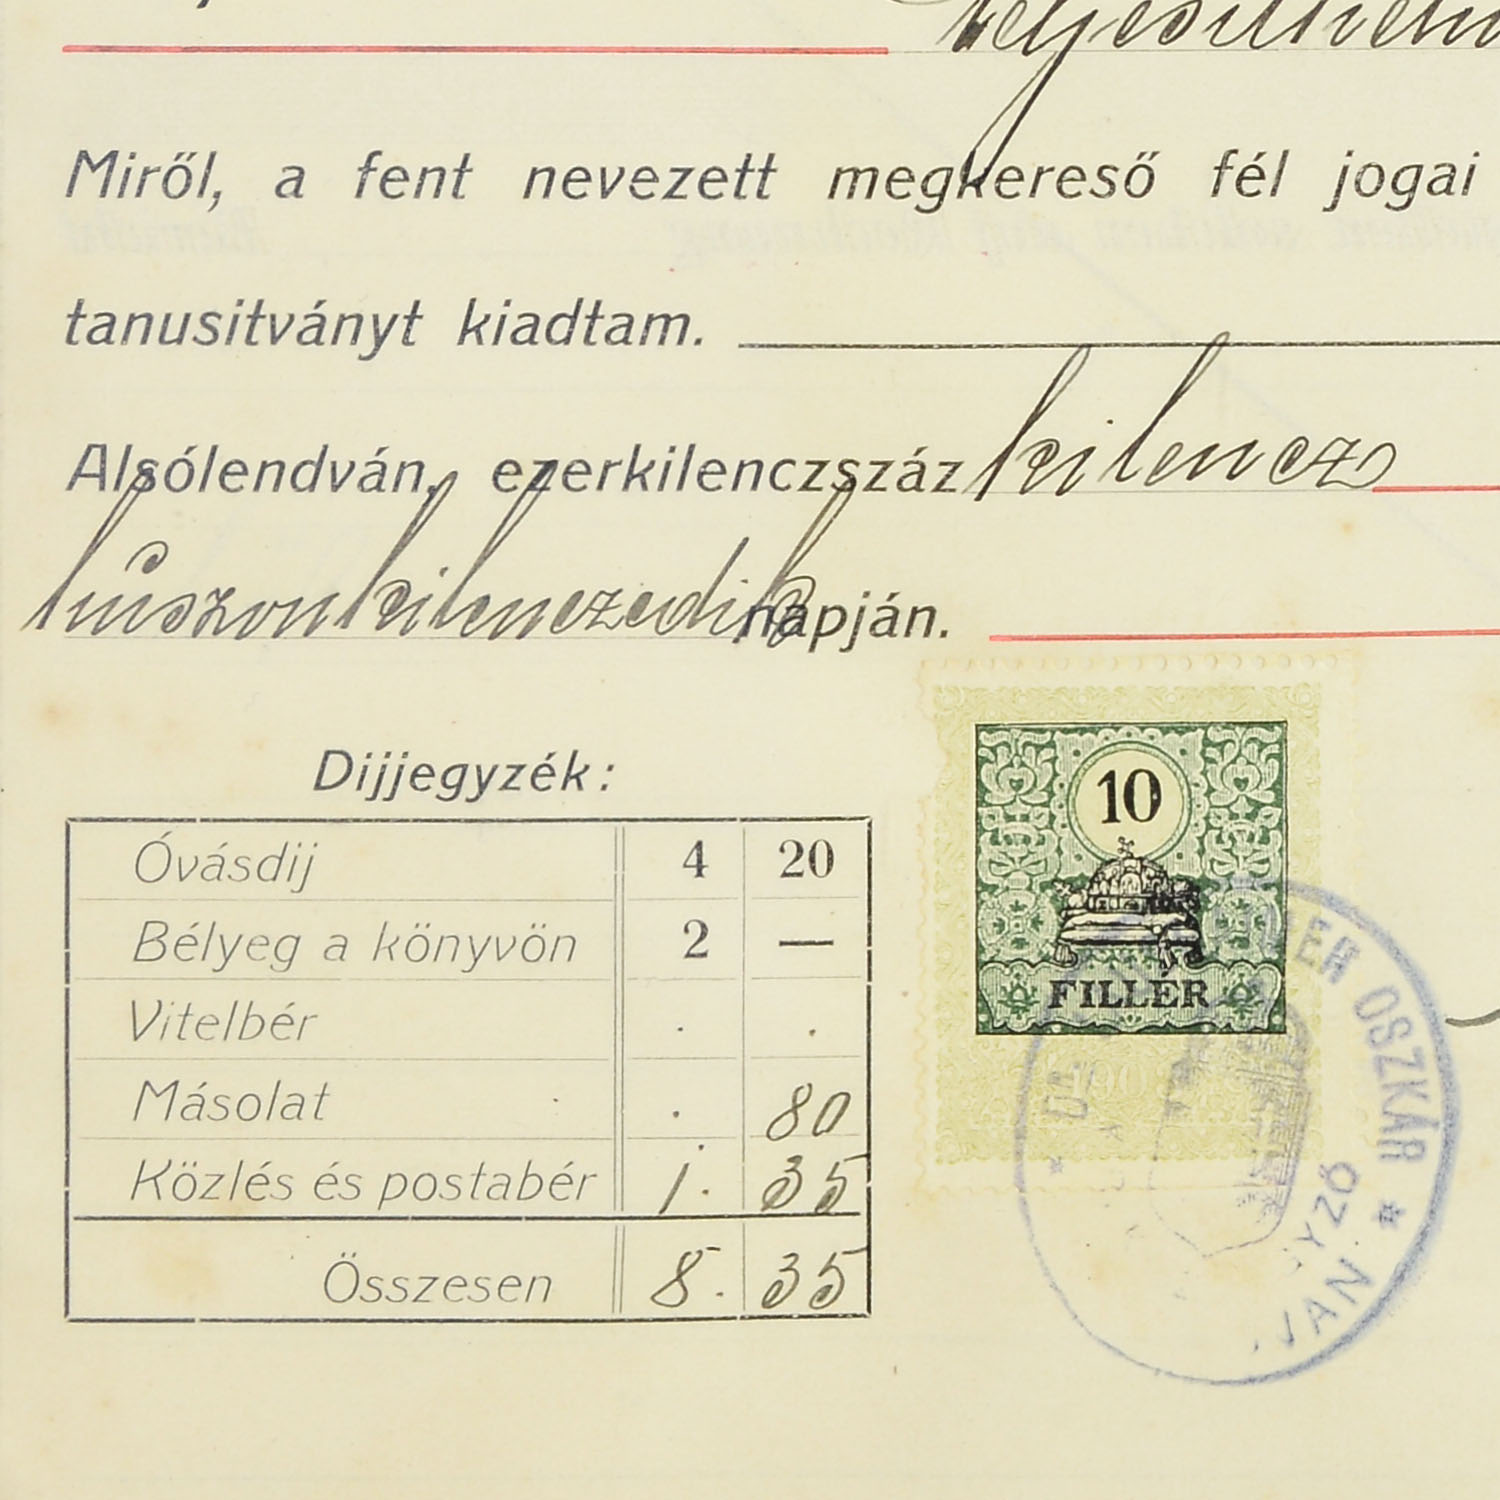 Miről, a fent nevezett megkereső fél jogai
tanusitványt kiadtam.
Alsólendván, ezerkilenczszáz kilencz
huszonkilenczedik napján.
Dijjegyzék:
Óvásdij 4 20
Bélyeg a könyvön 2 —
Vitelbér . .
Másolat . 80
Közlés és postabér 1. 35
Összesen 8. 35
10
FILLÉR
OSZKÁR